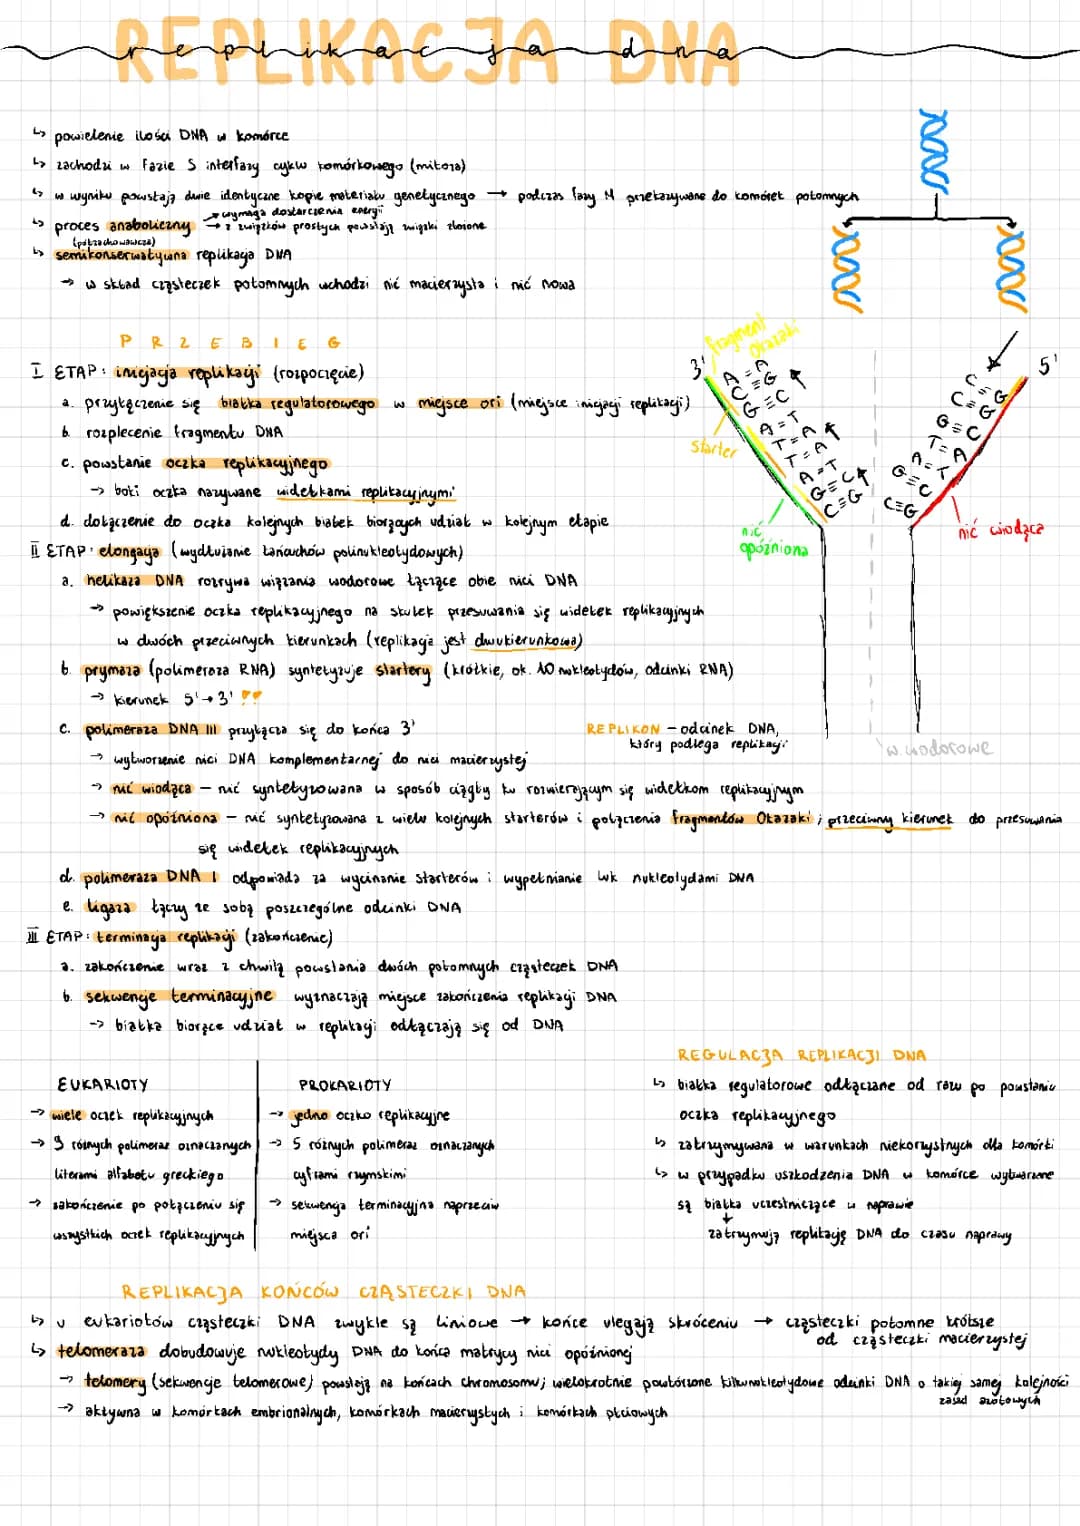 REPLIKACJA DNA
replikacja dna
↳ powielenie ilości DNA w komórce
↳ zachodzi w fazie S interfazy cyklu komórkowego (mitoza)
↳ w wyniku powstają dwie identyczne kopie materiału genetycznego → podczas fazy M przekazywane do komórek potomnych
↳ proces anaboliczny → wymaga dostarczenia energii
→ z związków prostych powstają związki złożone
(półzachowawcza)
↳ semikonserwatywna replikacja DNA
→ w skład cząsteczek potomnych uchodzi nić macierzysta i nić nowa
PRZEBIEG
I ETAP: inicjacja replikacji (rozpoczęcie)
a. przyłączenie się białka regulatorowego w miejsce ori (miejsce inicjacji replikacji)
b. rozplecenie fragmentu DNA
c. powstanie oczka replikacyjnego
→ boki oczka nazywane widełkami replikacyjnymi
d. dołączenie do oczka kolejnych białek biorących udział w kolejnym etapie
II ETAP: elongacja (wydłużanie łańcuchów polinukleotydowych)
a. helikaza DNA rozrywa wiązania wodorowe łączące obie nici DNA
→ powiększenie oczka replikacyjnego na skutek przesuwania się widełek replikacyjnych
w dwóch przeciwnych kierunkach (replikacja jest dwukierunkowa)
b. prymaza (polimeraza RNA) syntetyzuje startery (krótkie, ok. 10 nukleotydów, odcinki RNA)
→ kierunek 5'→3' !!
c. polimeraza DNA III przyłącza się do końca 3'
→ wytworzenie nici DNA komplementarnej do nici macierzystej
→ nić wiodąca – nić syntetyzowana w sposób ciągły ku rozwierającym się widełkom replikacyjnym
→ nić opóźniona – nić syntetyzowana z wielu kolejnych starterów i połączenia fragmentów Okazaki; przeciwny kierunek do przesuwania
się widełek replikacyjnych
d. polimeraza DNA I odpowiada za wycinanie starterów i wypełnianie luk nukleotydami DNA
e. ligaza łączy ze sobą poszczególne odcinki DNA
III ETAP: terminacja replikacji (zakończenie)
a. zakończenie wraz z chwilą powstania dwóch potomnych cząsteczek DNA
b. sekwencje terminacyjne wyznaczają miejsce zakończenia replikacji DNA
→ białka biorące udział w replikacji odłączają się od DNA
fragment
Okazaki
3'
5'
A=A
C≡G
G≡C
A=T
T=A
T=A
A=T
G≡C
C≡G
starter
nić
opóźniona
C≡G
C≡G
G≡C
T=A
A=T
G≡C
C≡G
nić wiodąca
w. wodorowe
REPLIKON – odcinek DNA,
który podlega replikacji
EUKARIOTY
→ wiele oczek replikacyjnych
→ 9 różnych polimeraz oznaczanych
literami alfabetu greckiego
→ zakończenie po połączeniu się
wszystkich oczek replikacyjnych
PROKARIOTY
→ jedno oczko replikacyjne
→ 5 różnych polimeraz oznaczanych
cyframi rzymskimi
→ sekwencja terminacyjna naprzeciw
miejsca ori
REGULACJA REPLIKACJI DNA
↳ białka regulatorowe odłączane od razu po powstaniu
oczka replikacyjnego
↳ zatrzymywana w warunkach niekorzystnych dla komórki
↳ w przypadku uszkodzenia DNA w komórce wytwarzane
są białka uczestniczące w naprawie
↓
zatrzymują replikację DNA do czasu naprawy
REPLIKACJA KOŃCÓW CZĄSTECZKI DNA
↳ u eukariotów cząsteczki DNA zwykle są liniowe → końce ulegają skróceniu → cząsteczki potomne krótsze
od cząsteczki macierzystej
↳ telomeraza dobudowuje nukleotydy DNA do końca matrycy nici opóźnionej
→ telomery (sekwencje telomerowe) powstają na końcach chromosomu; wielokrotnie powtórzone kilkunukleotydowe odcinki DNA o takiej samej kolejności
zasad azotowych
→ aktywna w komórkach embrionalnych, komórkach macierzystych i komórkach płciowych